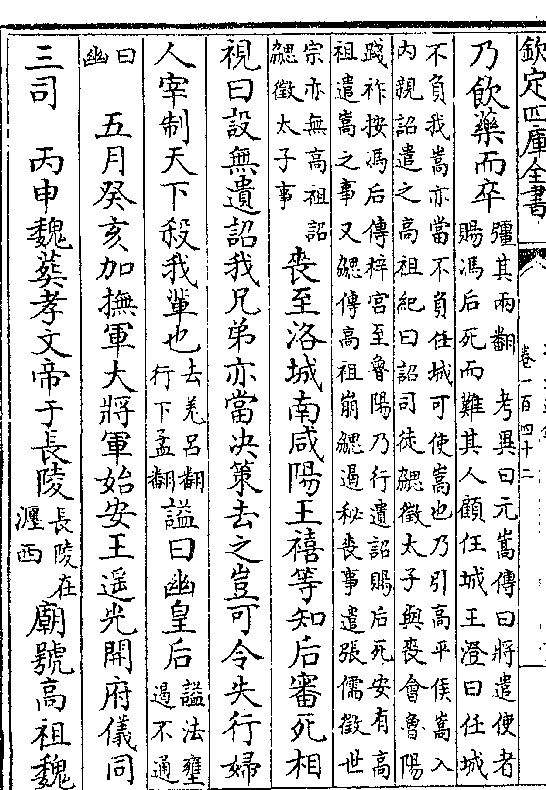 欽定四庫全書
卷一百四十二
乃飲藥而卒
彊其兩翻　考異曰元嵩傳曰將遣使者
賜馮后死而難其人顧任城王澄曰任城
不負我嵩亦當不負任城可使嵩也乃引高平侯嵩入
内親詔遣之高祖紀曰詔司徒勰徵太子與喪會魯陽
踐祚按馮后傳梓宫至魯陽乃行遺詔賜后死安有高
祖遣嵩之事又勰傳高祖崩勰遏秘喪事遣張儒徵世
宗亦無高祖詔
勰徵太子事
喪至洛城南咸陽王禧等知后審死相
視曰設無遺詔我兄弟亦當決策去之豈可令失行婦
人宰制天下殺我輩也
去羌吕翻
行下孟翻
諡曰幽皇后
諡法壅
遏不通
曰
幽
五月癸亥加撫軍大將軍始安王遥光開府儀同
三司　丙申魏葬孝文帝于長陵
長陵在
瀍西
廟號高祖魏